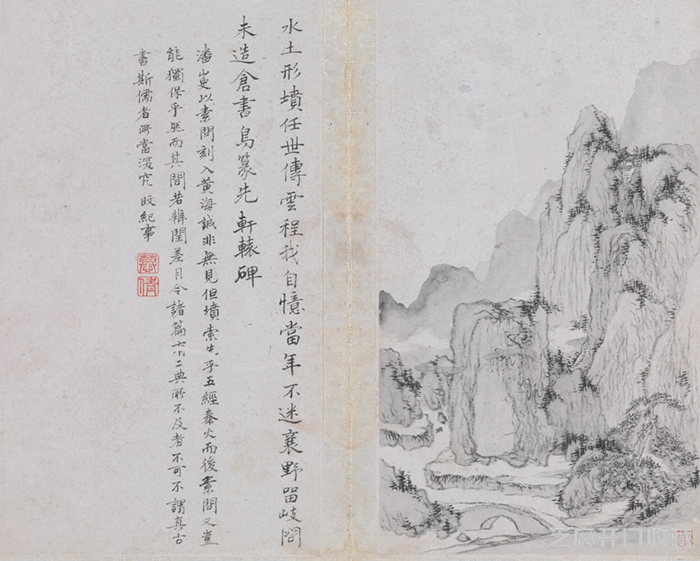 水土形墳任世傳雲程我自憶當年不迷襄野留岐問
未造倉書鳥篆先 軒轅碑
潘叟以素問刻入黄海誠非無見但墳索先乎五經秦火而後素問又豈
能獨保乎然而其間若辨閏差月令諸篇亦二典所不及者不可不謂真古
書斯儒者所當深究 旼紀事
芝麻开口收